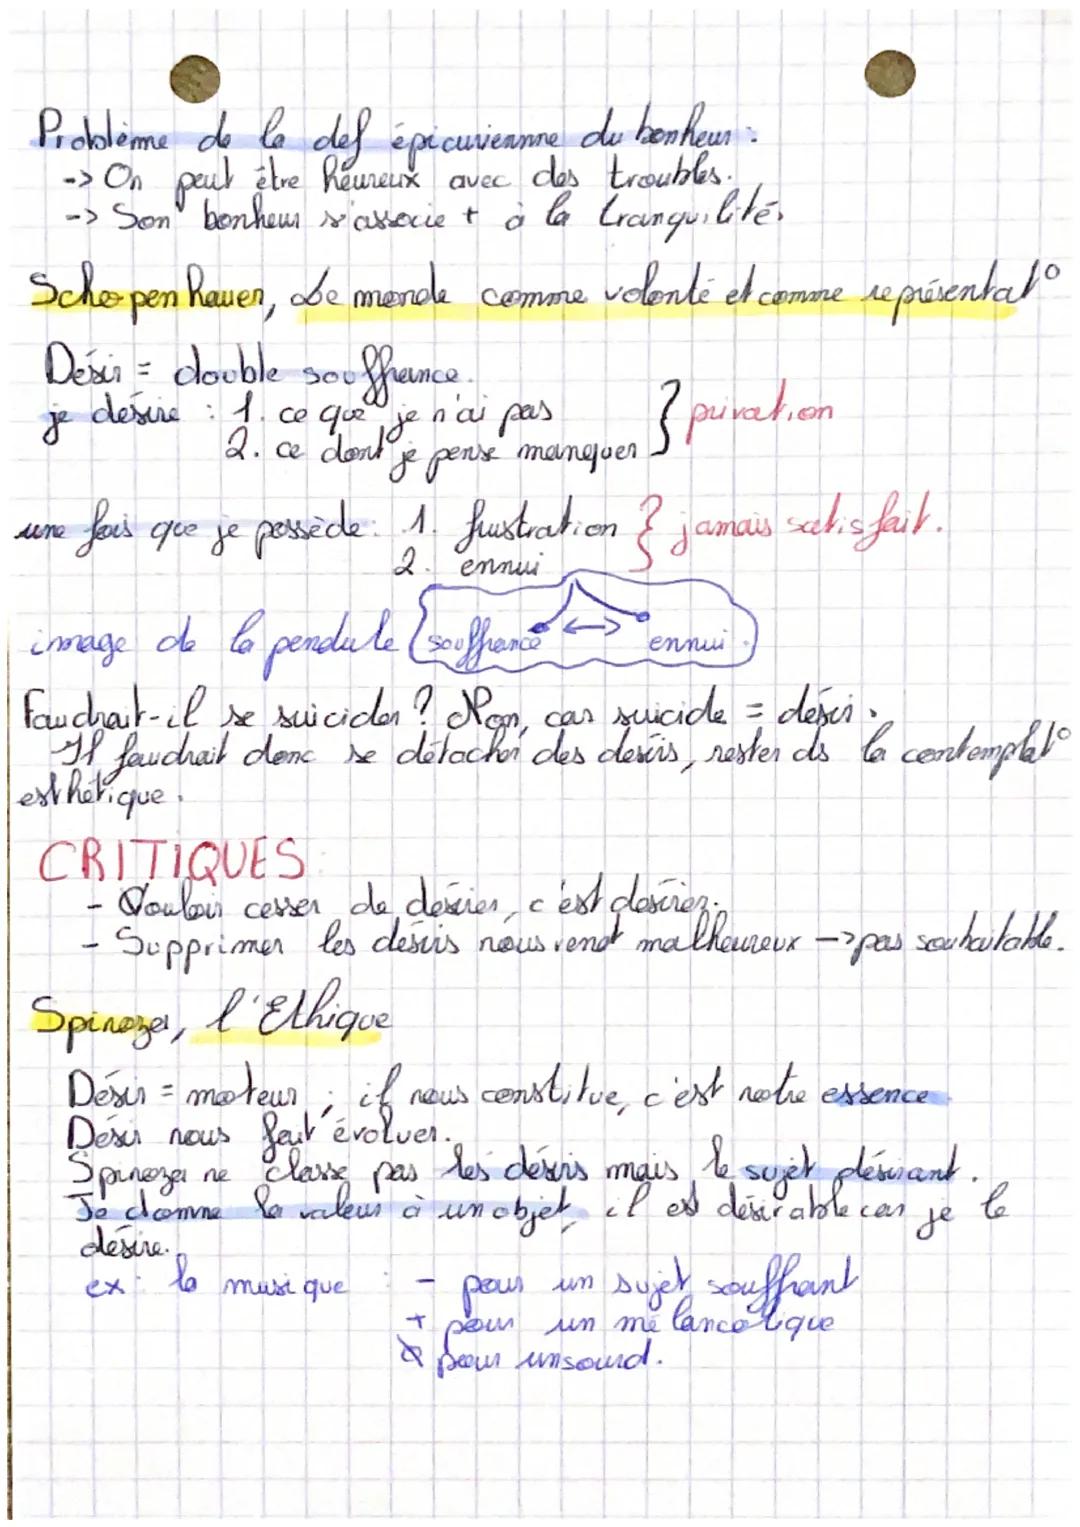 Problème de la def épicurienne du bonheur :
-> On peut être heureux avec des troubles.
-> Son bonheur s'associe + à la tranquilité.
Schopenhauer, Le monde comme volonté et comme représentat°
Désir = double souffrance.
je désire : 1. ce que je n'ai pas
2. ce dont je pense manquer } privation
une fois que je possède : 1. frustration } jamais satisfait.
2. ennui
image de la pendule (souffrance <-> ennui.)
Faudrait-il se suicider ? Non, car suicide = désir.
Il faudrait donc se détacher des désirs, rester ds la contemplat°
esthétique.
CRITIQUES :
- Vouloir cesser de désirer, c'est désirer.
- Supprimer les désirs nous rend malheureux -> pas souhaitable.
Spinoza, l'Ethique
Désir = moteur ; il nous constitue, c'est notre essence
Désir nous fait évoluer.
Spinoza ne classe pas les désirs mais le sujet désirant.
Je donne la valeur à un objet, il est désirable car je le
désire.
ex : la musique : - pour un sujet souffrant
+ pour un mélancolique
Ø pour un sourd.